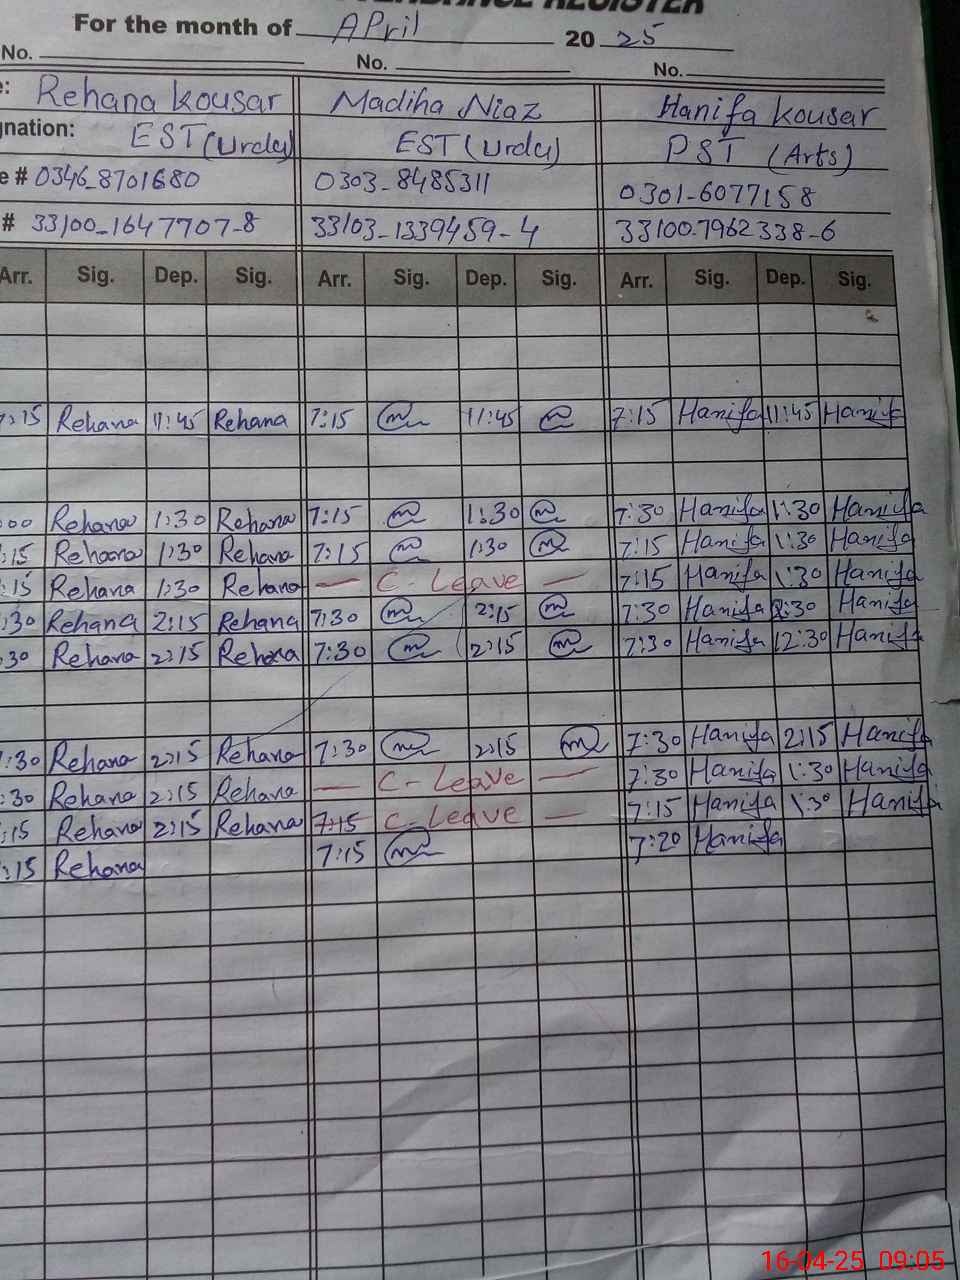 REGISTER
For the month of April 20 25
No. No. No.
Rehana Kousar Madiha Niaz Hanifa Kousar
gnation: EST (Urdu) EST (Urdu) PST (Arts)
e # 0346-8701680 0303-8485311 0301-6077158
# 33100-1647707-8 33103-1339459-4 33100-7962338-6
Arr. Sig. Dep. Sig. Arr. Sig. Dep. Sig. Arr. Sig. Dep. Sig.
7:15 Rehana 11:45 Rehana 7:15 11:45 7:15 Hanifa 11:45 Hanifa
:00 Rehana 1:30 Rehana 7:15 1:30 7:30 Hanifa 1:30 Hanifa
:15 Rehana 1:30 Rehana 7:15 1:30 7:15 Hanifa 1:30 Hanifa
:15 Rehana 1:30 Rehana — C-Leave — 7:15 Hanifa 1:30 Hanifa
:30 Rehana 2:15 Rehana 7:30 2:15 7:30 Hanifa :30 Hanifa
:30 Rehana 2:15 Rehana 7:30 2:15 7:30 Hanifa 12:30 Hanifa
:30 Rehana 2:15 Rehana 7:30 2:15 7:30 Hanifa 2:15 Hanifa
:30 Rehana 2:15 Rehana — C-Leave — 7:30 Hanifa 1:30 Hanifa
:15 Rehana 2:15 Rehana 7:15 C-Leave — 7:15 Hanifa 1:30 Hanifa
:15 Rehana 7:15 7:20 Hanifa
16-04-25 09:05